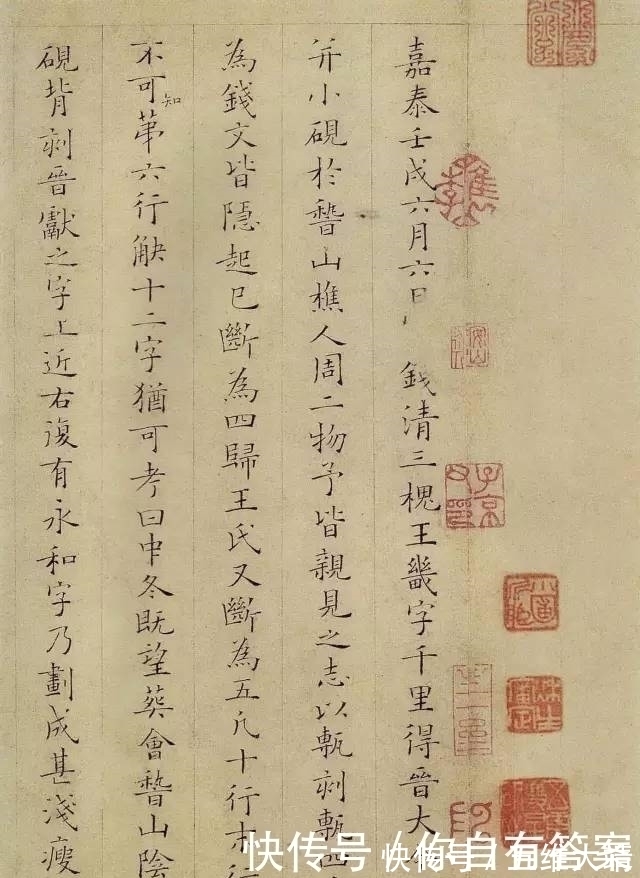 嘉泰壬戌六月六日 錢清三槐王畿字千里得晉大
并小硯於嵇山樵人周二物予皆親見之志以甎刻甎四
為錢文皆隱起已斷為四歸王氏又斷為五凡十行末行
不可知苐六行缺十二字猶可考曰中冬既望葬會嵇山陰
硯背刻晉獻之字上近右復有永和字乃劃成甚淺瘦
子京
快传号 / 你自有答案
快传号